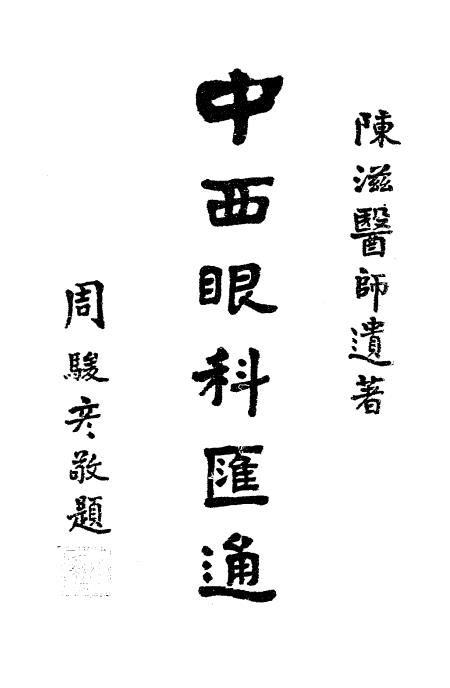 陳滋醫師遺著
中西眼科匯通
周駿彥敬題